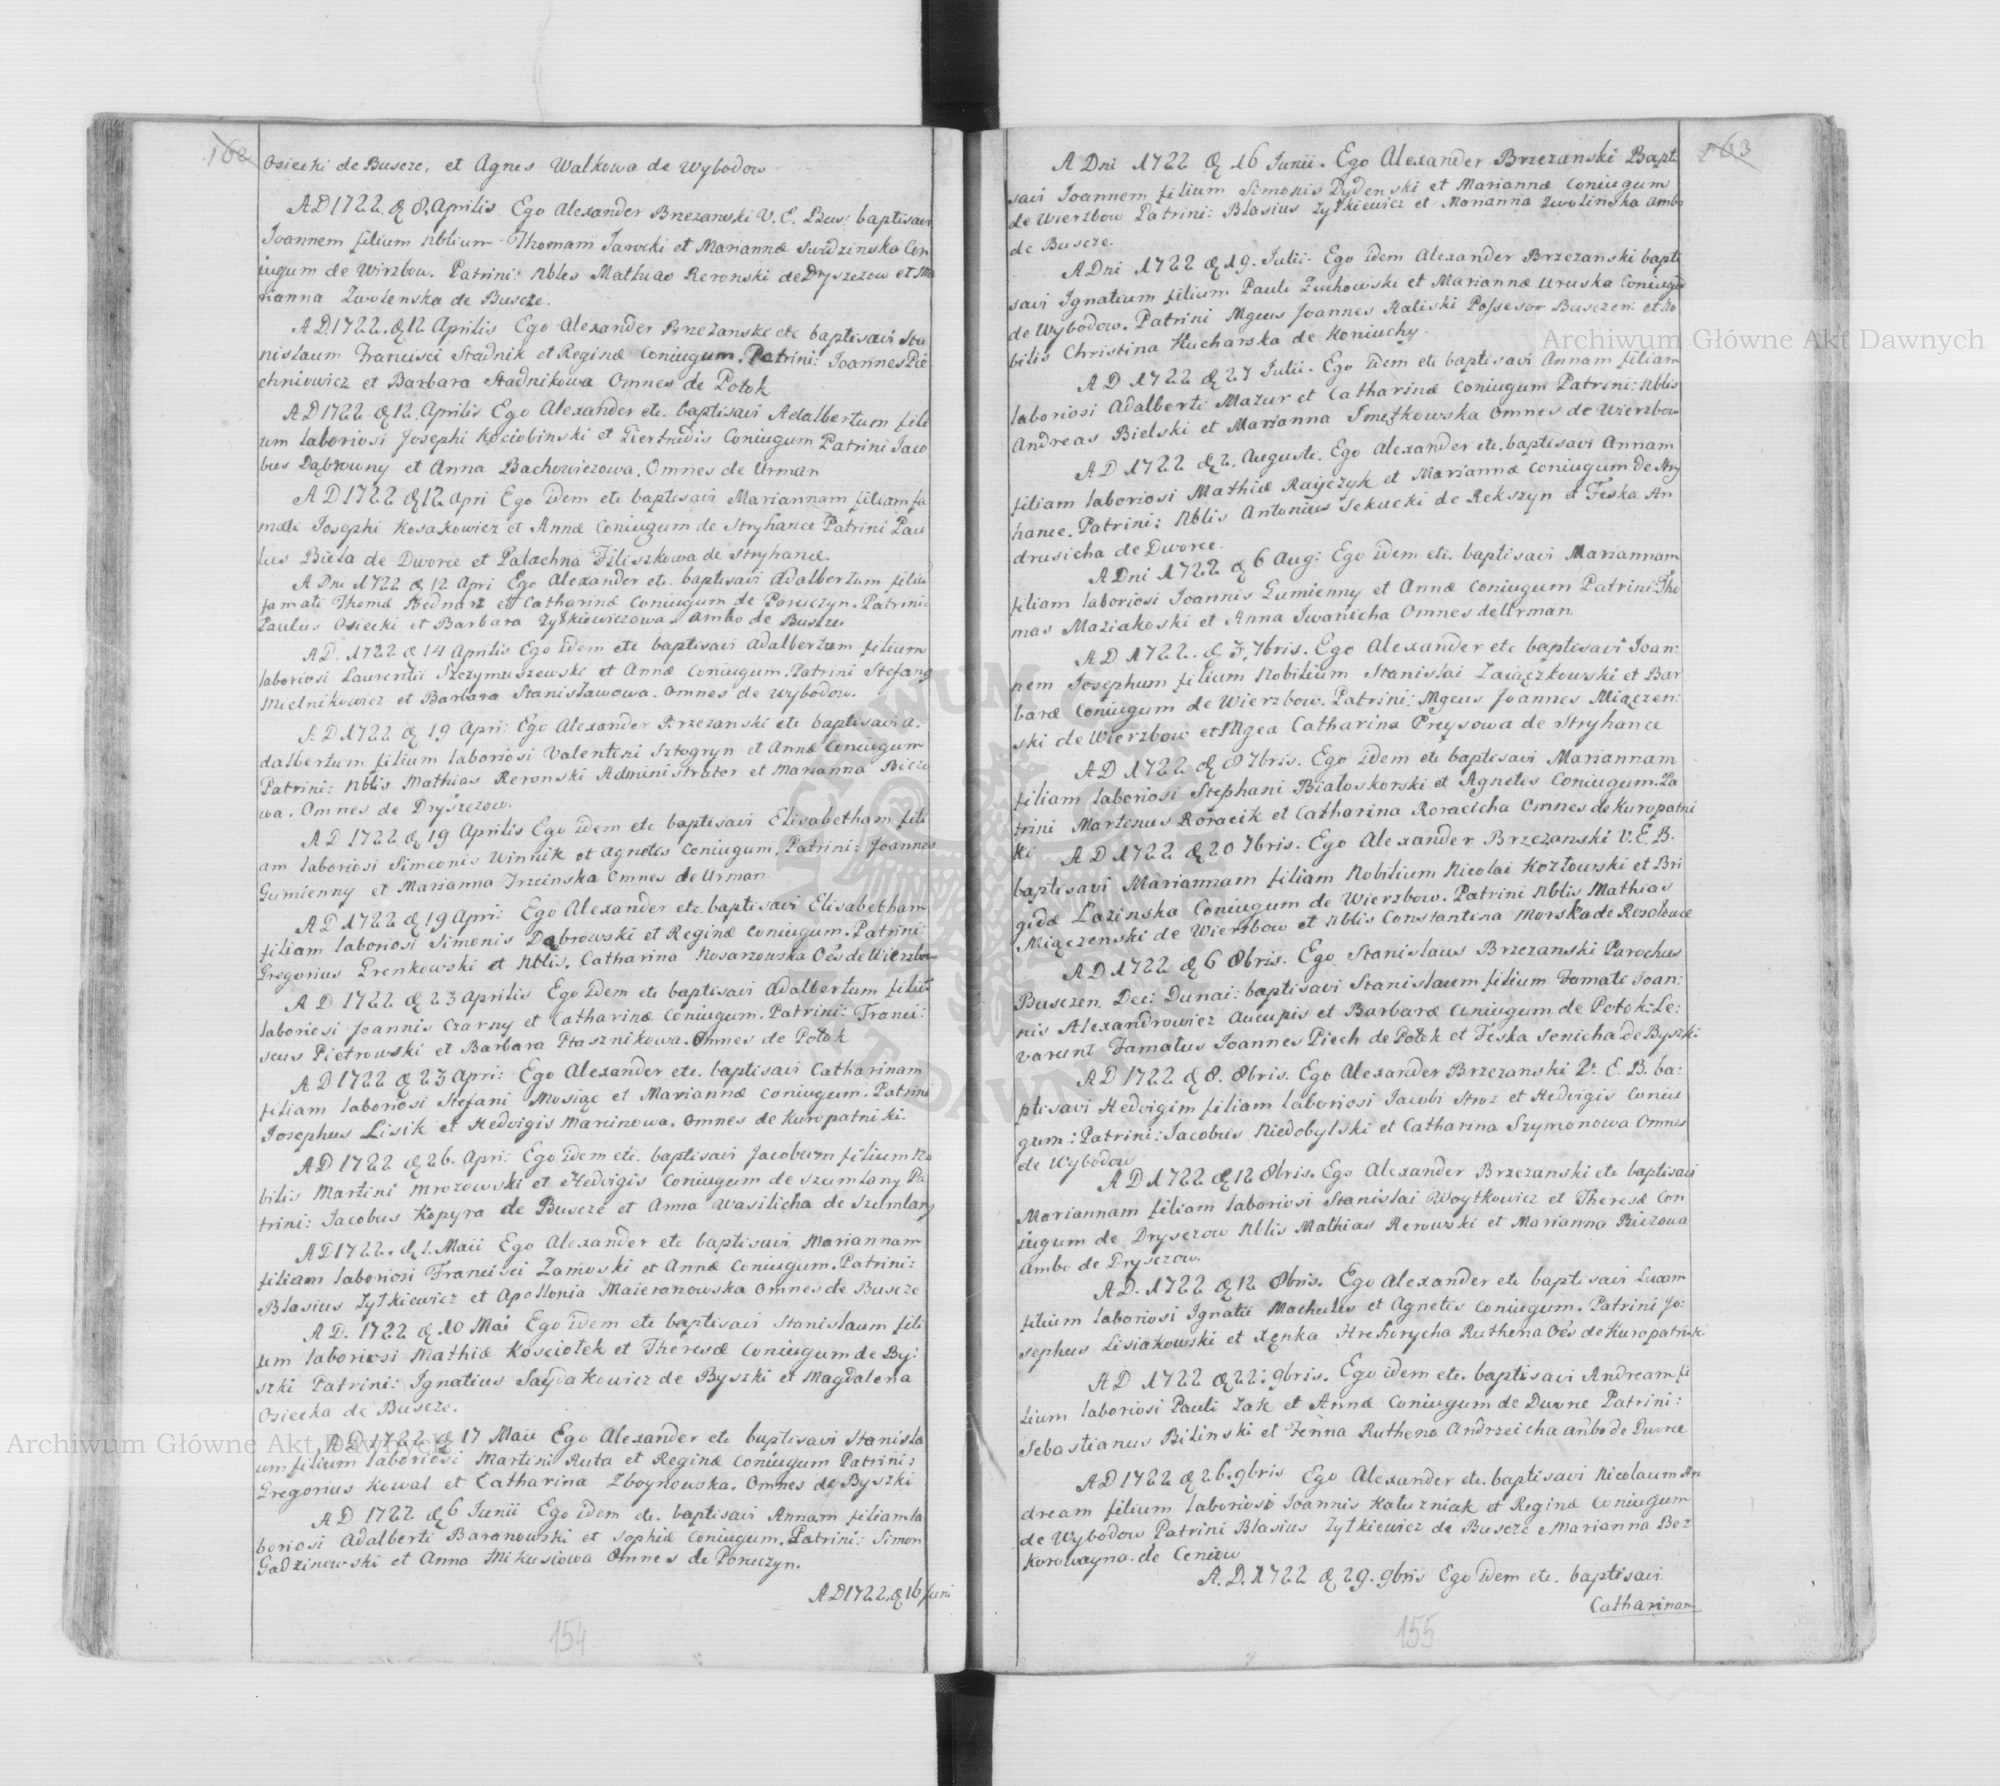 162
Osiecki de Buscze, et Agnes Walkowa de Wybodow
A D 1722 d. 8. Aprilis Ego Alexander Brzezanski V. E. baptisavi
Joannem filium Nblium Thomam Jarocki et Mariannæ Swidzinska Con
iugum de Wirzbow. Patrini: Nbles Mathias Reronski de Dryszczow et Ma
rianna Zwolenska de Buscze.
A D 1722. d. 12 Aprilis Ego Alexander Brzezanski etc baptisavi Sta
nislaum Francisci Stadnik et Reginæ Coniugum. Patrini: Joannes Pie
chniowicz et Barbara Stadnikowa Omnes de Potok
A D 1722 d. 12. Aprilis Ego Alexander etc. baptisavi Adalbertum fili
um laboriosi Josephi Kociobinski et Giertrudis Coniugum Patrini Jaco
bus Dąbrowny et Anna Bachowiczowa. Omnes de Urman
A D 1722 d. 12 Apri Ego idem etc baptisavi Mariannam filiam fa
mati Josephi Kosakowicz et Annæ Coniugum de Stryhance Patrini Pau
lus Biela de Dworce et Palachna Filiszkowa de Stryhance.
A Dni 1722 d. 12 Apri Ego Alexander etc. baptisavi Adalbertum filiu
famati Thomæ Bednarz et Catharinæ Coniugum de Poruczyn. Patrini:
Paulus Osiecki et Barbara Zytkiewiczowa Ambo de Buscze.
A D. 1722 d. 14 Aprilis Ego idem etc baptisavi Adalbertum filium
laboriosi Laurentii Szczymuszewski et Annæ Coniugum. Patrini Stefang
Mielnikowicz et Barbara Stanisławowa. Omnes de Wybodow.
A D 1722 d. 19 Apri: Ego Alexander Brzezanski etc baptisavi A.
dalbertum filium laboriosi Valentini Sztogryn et Annæ Coniugum
Patrini: Nblis Mathias Reronski Administrator et Marianna Bicze
wa. Omnes de Dryszczow.
A D 1722 d. 19 Aprilis Ego idem etc baptisavi Elisabetham fili
am laboriosi Simeonis Winnik et Agnetis Coniugum. Patrini: Joannes
Gumienny et Marianna Trzcinska Omnes de Urman
A D 1722 d. 19 Apri: Ego Alexander etc. baptisavi Elisabetham
filiam laboriosi Simonis Dąbrowski et Reginæ Coniugum. Patrini:
Gregorius Grenkowski et Nblis. Catharina Kosarzowska Oes de Wierzbow
A D 1722 d. 23 Aprilis Ego idem etc baptisavi Adalbertum filiu
laboriosi Joannis Czarny et Catharinæ Coniugum. Patrini: Franci:
scus Pietrowski et Barbara Ptasznikowa. Omnes de Potok
A D 1722 d. 23 Apri: Ego Alexander etc. baptisavi Catharinam
filiam laboriosi Stefani Mosiąc et Mariannæ Coniugum. Patrini
Josephus Lisik et Hedvigis Marcinowa. Omnes de Kuropatniki.
A D 1722 d. 26. Apri: Ego idem etc. baptisavi Jacobum filium No
bilis Martini Mrozowski et Hedvigis Coniugum de Szumlany Pa
trini: Jacobus Kopyra de Buscze et Anna Wasilicha de Szumlany
A D 1722. d. 1. Maii Ego Alexander etc baptisavi Mariannam
filiam laboriosi Francisci Zamoski et Annæ Coniugum. Patrini:
Blasius Zytkiewicz et Apollonia Maieranowska Omnes de Buscze
A D. 1722 d. 10 Mai Ego idem etc baptisavi Stanislaum fili
um laboriosi Mathiæ Kosciołek et Theresæ Coniugum de By:
szki Patrini: Ignatius Saydakowicz de Byszki et Magdalena
Osiecka de Buscze.
A D 1722 d. 17 Maii Ego Alexander etc baptisavi Stanisla
um filium laboriosi Martini Ruta et Reginæ Coniugum Patrini:
Gregorius Kowal et Catharina Zboynowska. Omnes de Byszki
A D 1722 d. 6 Junii Ego idem etc. baptisavi Annam filiam la
boriosi Adalberti Baranowski et Sophiæ Coniugum. Patrini: Simon
Gadzinowski et Anna Mikusiowa Omnes de Poruczyn.
A D 1722. d. 16 Juni
154
163
A Dni 1722 d. 16 Junii. Ego Alexander Brzezanski Bapti
savi Joannem filium Simonis Dydenski et Mariannæ Coniugum
de Wierzbow Patrini: Blasius Zytkiewicz et Marianna Zwolinska Ambo
de Buscze.
A Dni 1722 d. 19. Julii. Ego idem Alexander Brzezanski bapti
savi Ignatium filium Pauli Zuchowski et Mariannæ Uruska Coniugu
de Wybodow. Patrini Mgcus Joannes Kaliski Possesor Busczen: et No
bilis Christina Kucharska de Koniuchy.
A D 1722 d. 27 Julii. Ego idem etc baptisavi Annam filiam
laboriosi Adalberti Mazur et Catharinæ Coniugum Patrini: Nblis
Andreas Bielski et Marianna Smętkowska Omnes de Wierzbow
A D 1722 d. 2. Auguste. Ego Alexander etc. baptisavi Annam
filiam laboriosi Mathiæ Rayczyk et Mariannæ Coniugum de Stry
hance. Patrini: Nblis Antonius Sekucki de Rekszyn et Feska An
drusicha de Dworce.
A Dni 1722 d. 6 Aug: Ego idem etc. baptisavi Mariannam
filiam laboriosi Joannis Gumienny et Annæ Coniugum Patrini: Tho
mas Maziakoski et Anna Iwanicha Omnes de Urman
A D 1722. d. 7. 7bris. Ego Alexander etc baptisavi Joan:
nem Josephum filium Nobilium Stanislai Zaiączkowski et Bar
baræ Coniugum de Wierzbow. Patrini: Mgcus Joannes Miączen:
ski de Wierzbow et Mgca Catharina Preysowa de Stryhance
A D 1722 d. 8 7bris. Ego idem etc baptisavi Mariannam
filiam laboriosi Stephani Białoskorski et Agnetis Coniugum. Pa
trini Martinus Roracik et Catharina Roracicha Omnes de Kuropatni
ki A D 1722 d. 20 7bris. Ego Alexander Brzezanski V. E. B.
baptisavi Mariannam filiam Nobilium Nicolai Kozłowski et Bri
gidæ Lazinska Coniugum de Wierzbow. Patrini Nblis Mathias
Miączenski de Wierzbow et Nblis Constantina Morska de Rosolowce
A D 1722 d. 6 8bris. Ego Stanislaus Brzezanski Parochus
Busczen. Dec: Dunai: baptisavi Stanislaum filium Famati Joan:
nis Alexandrowicz Aucupis et Barbaræ Coniugum de Potok: Le:
varunt Famatus Joannes Piech de Potok et Feska Senicha de Byszki
A D 1722 d. 8. 8bris. Ego Alexander Brzezanski V. E. B. ba:
ptisavi Hedvigim filiam laboriosi Jacobi Stroz et Hedvigis Coniu
gum: Patrini: Jacobus Niedobylski et Catharina Szymonowa Omnes
de Wybodow
A D 1722 d. 12 8bris. Ego Alexander Brzezanski etc baptisavi
Mariannam filiam laboriosi Stanislai Woytkowicz et Theresæ Con
iugum de Dryszczow Nblis Mathias Rerowski et Marianna Biczowa
Ambo de Dryszczow.
A D. 1722 d. 12 8bris. Ego Alexander etc baptisavi Lucam
filium laboriosi Ignatii Machules et Agnetis Coniugum. Patrini Jo:
sephus Lisiakowski et Xęnka Hrehorycha Ruthena Oes de Kuropatniki
A D 1722 d. 22: 9bris. Ego idem etc. baptisavi Andream fi
lium laboriosi Pauli Zak et Annæ Coniugum de Dworce Patrini:
Sebastianus Bilinski et Fenna Ruthena Andrzeicha ambo de Dworce
A D 1722 d. 26. 9bris Ego Alexander etc. baptisavi Nicolaum An
dream filium laboriosi Joannis Kałuzniak et Reginæ Coniugum
de Wybodow Patrini Blasius Zytkiewicz de Buscze et Marianna Bez
Korowayna. de Ceniow
A. D. 1722 d. 29. 9bris Ego idem etc. baptisavi
Catharinam
155
Archiwum Główne Akt Dawnych
Archiwum Główne Akt Dawnych